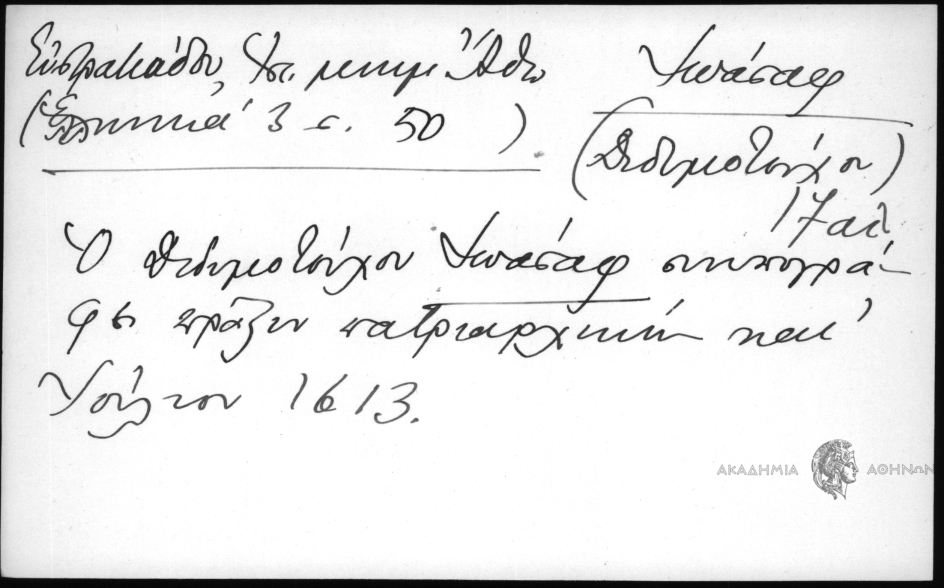 Εὐστρατιάδου, Ἱστ. μνημ. Ἄθω
(Ἑλληνικά 3 σ. 50 )
Ἰωάσαφ
(Διδυμοτείχου)
17 αἰ.
Ὁ Διδυμοτείχου Ἰωάσαφ συνυπογρά-
φει πρᾶξιν πατριαρχικήν κατ'
Ἰούλιον 1613.
ΑΚΑΔΗΜΙΑ ΑΘΗΝΩΝ